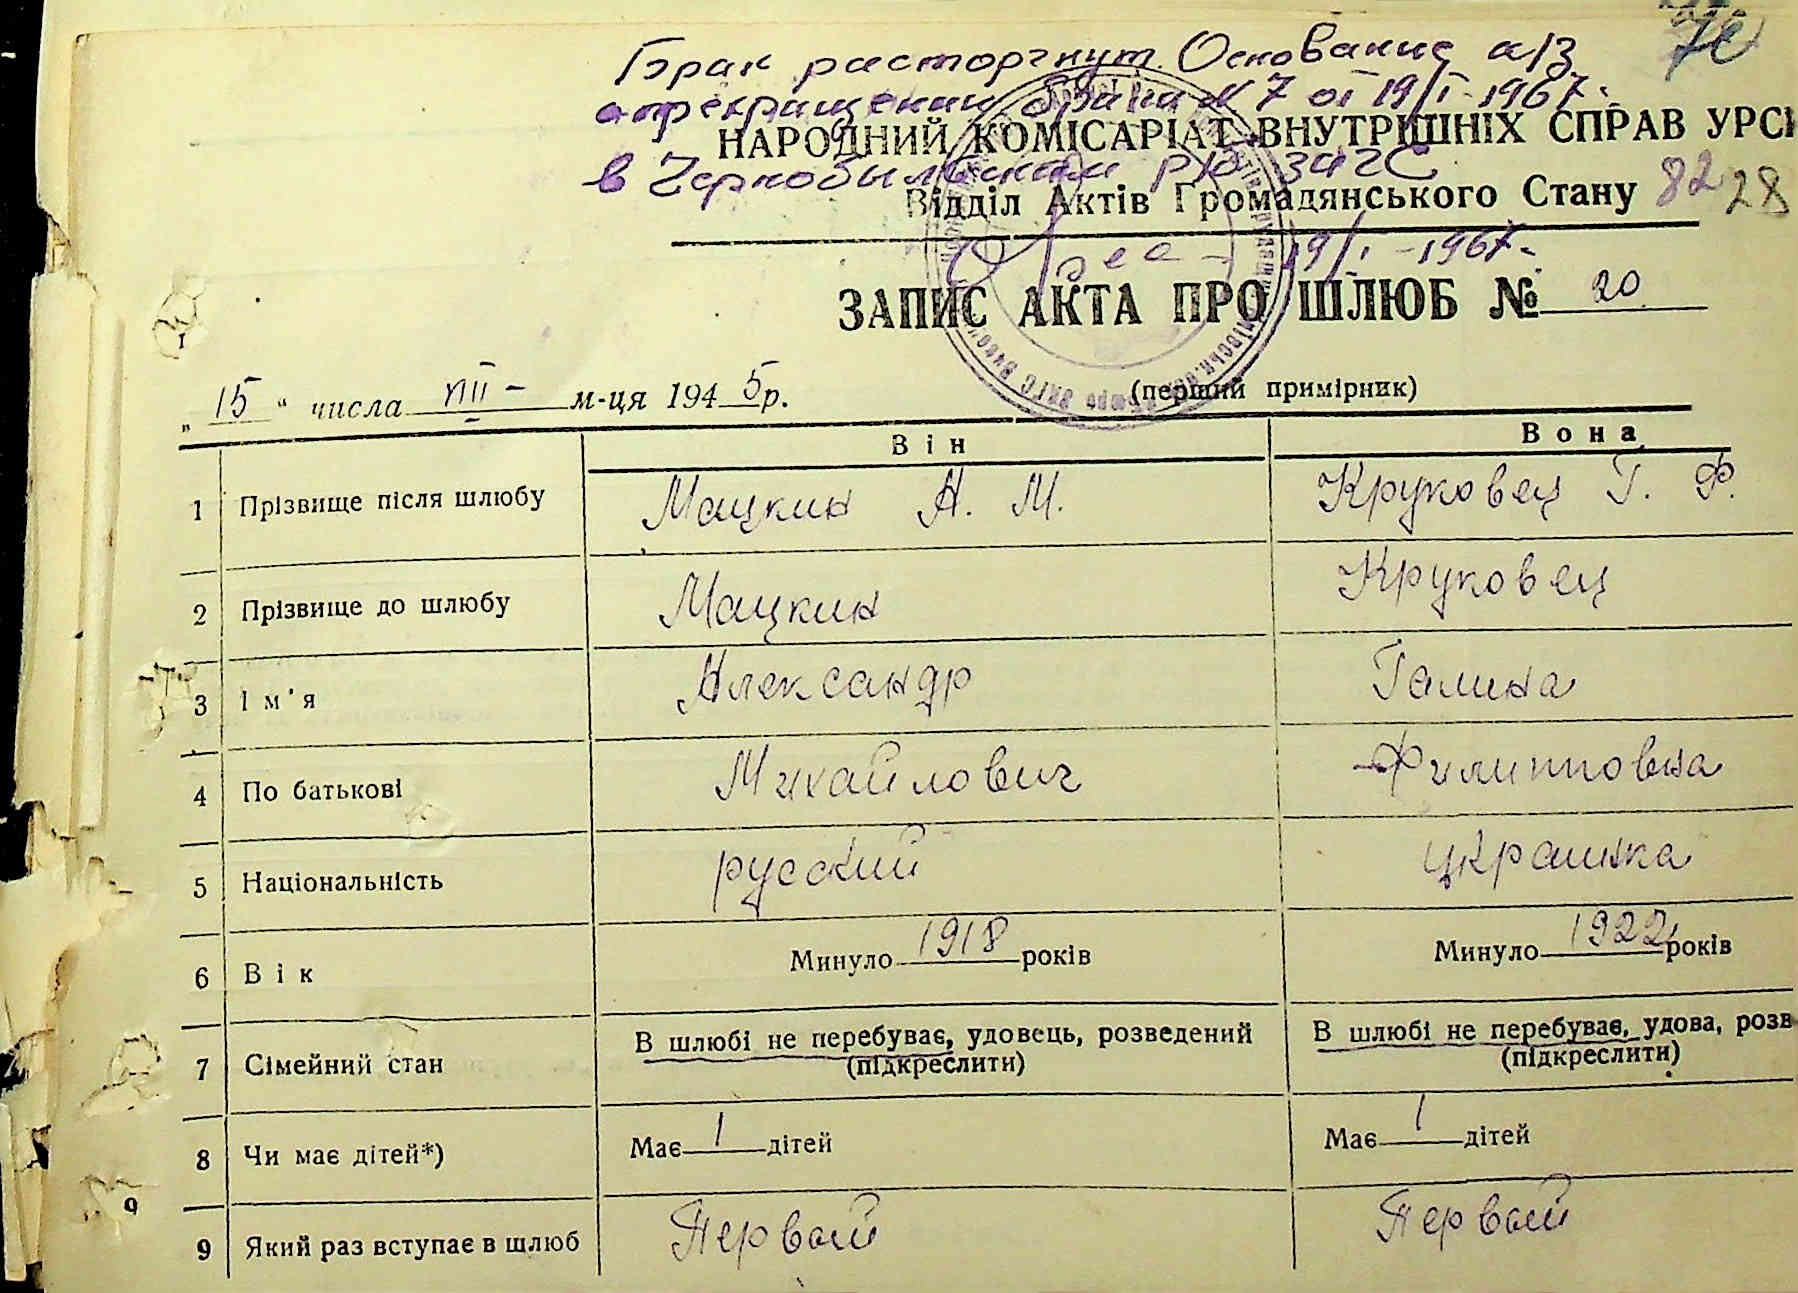 Брак расторгнут. Основание а/з
о прекращении брака N 7 от 19/I-1967г.
НАРОДНИЙ КОМІСАРІАТ ВНУТРІШНІХ СПРАВ УРСР
в Чернобыльском р/ю загс
Відділ Актів Громадянського Стану 82 28
19/I-1967г.
ЗАПИС АКТА ПРО ШЛЮБ № 20
„ 15 " числа VIII - м-ця 1945р. (перший примірник)
Він Вона
1 Прізвище після шлюбу Мацкин А. М. Круковец Г. Ф.
2 Прізвище до шлюбу Мацкин Круковец
3 Ім'я Александр Галина
4 По батькові Михайлович Филипповна
5 Національність русский украинка
6 Вік Минуло 1918 років Минуло 1922 років
7 Сімейний стан В шлюбі не перебуває, удовець, розведений (підкреслити) В шлюбі не перебуває, удова, розв (підкреслити)
8 Чи має дітей*) Має 1 дітей Має 1 дітей
9
9 Який раз вступає в шлюб Первый Первый